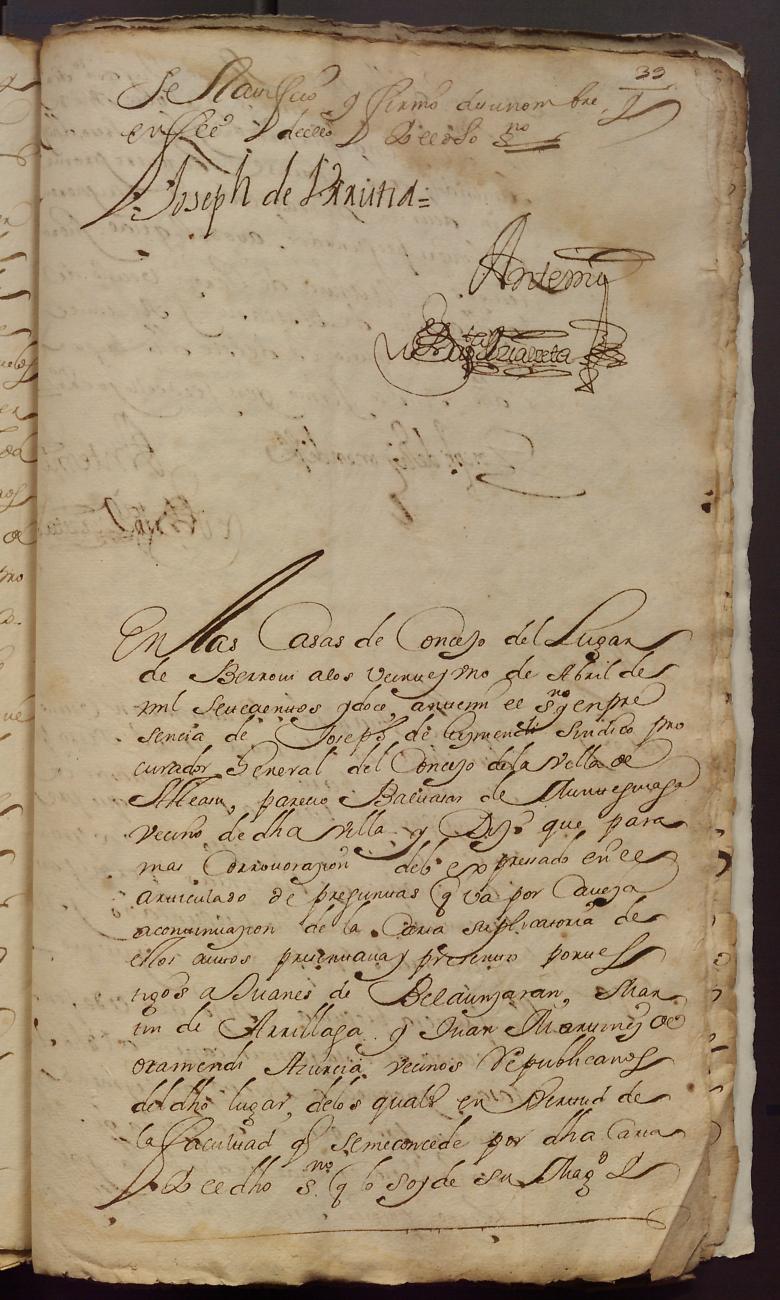 39
Se Ratificó y firmo de su nombre,
en fee de ello Yo el dho S.no
Joseph de Urrutia =
Ante mi
En las Casas de Concejo del Lugar
de Berrovi a los veinte y uno de Abril de
mil setecientos y doce, ante mi el s.no y en pre
sencia de Joseph de Leymendi sindico pro
curador General del Concejo de la villa de
parecio Baltasar de
vecino de dha villa y Dijo que para
mas Corrovorazion delo expressado en el
articulado de preguntas q va por Caveza
a continuazion de la Carta suplicatoria de
estos autos presentava y presento por tes
tigos a Juanes de Belaunzaran, Mar
tin de Arrillaga y Juan Martinez de
otamendi Azurcia vecinos Republicanos
del dho lugar, delos quales en Virtud de
la facultad q se me concede por dha Carta
Yo el dho s.no q lo soy de su Mag.d